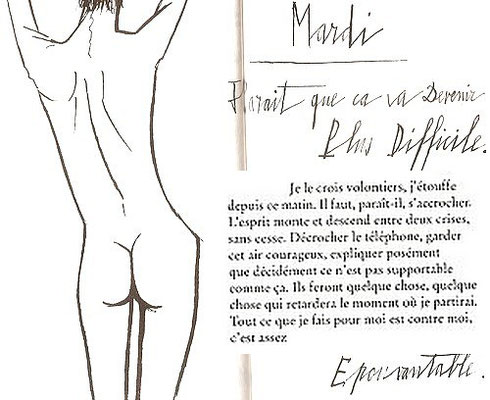 Mardi
Parait que ca va Devenir
Plus Difficile.
Je le crois volontiers, j'étouffe
depuis ce matin. Il faut, paraît-il, s'accrocher.
L'esprit monte et descend entre deux crises,
sans cesse. Décrocher le téléphone, garder
cet air courageux, expliquer posément
que décidément ce n'est pas supportable
comme ça. Ils feront quelque chose, quelque
chose qui retardera le moment où je partirai.
Tout ce que je fais pour moi est contre moi,
c'est assez
Epouvantable.